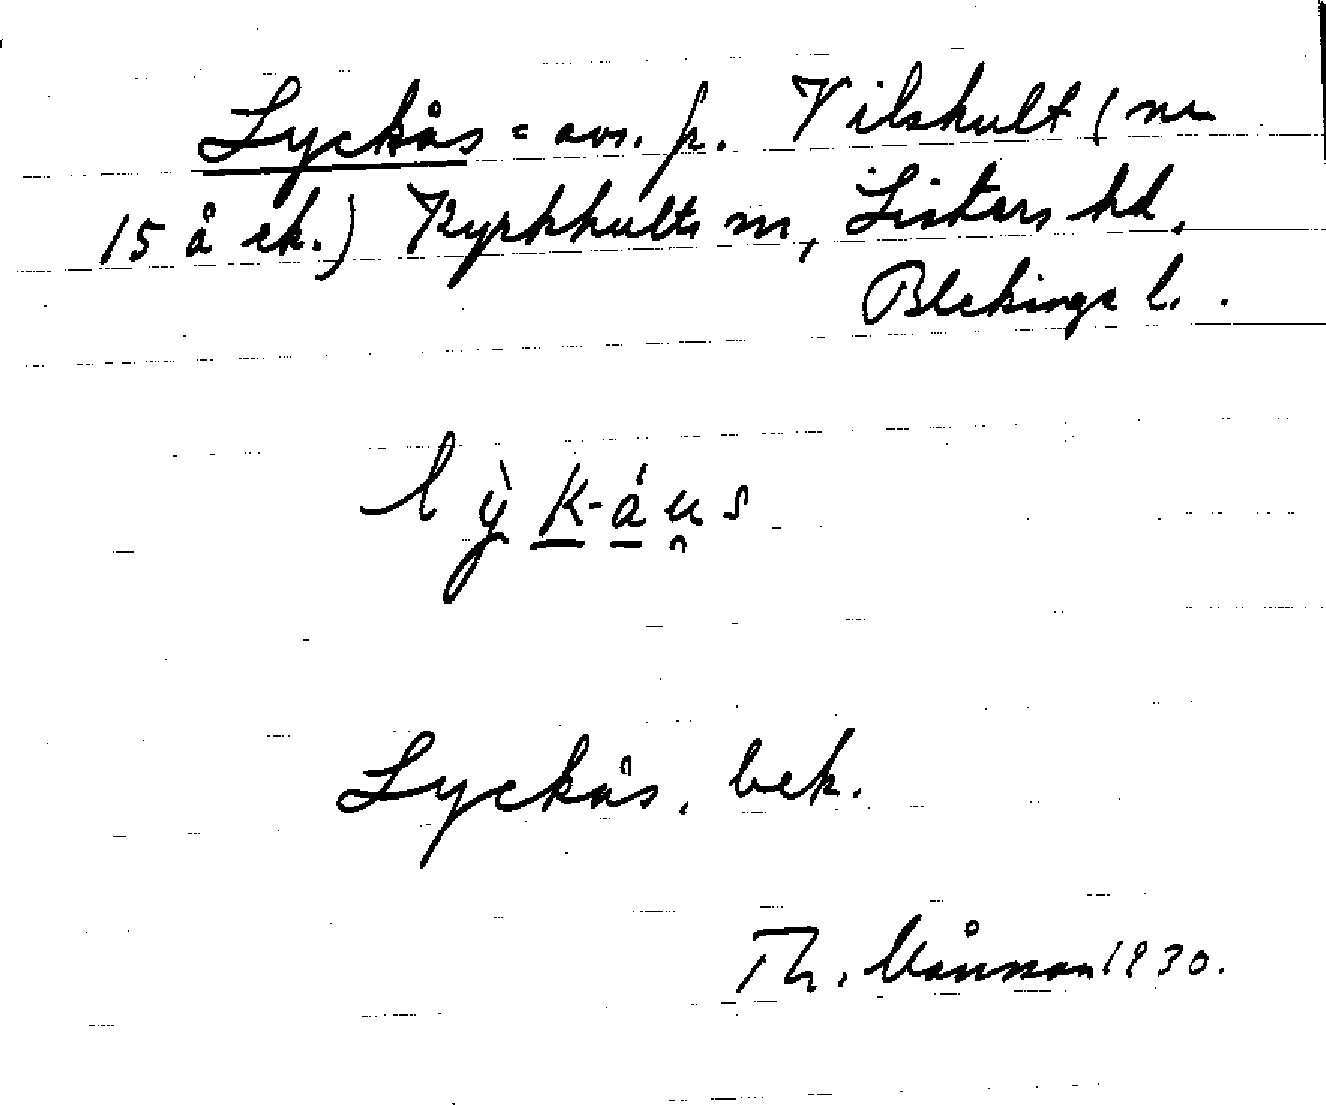 Lyckås = avs. p. Vilshult (nr
15 å ek.) Kyrkhults sn, Listers hd,
Blekinge l.
lỳk-áu̯s
Lyckås, bek.
Th. Månsson 1930.